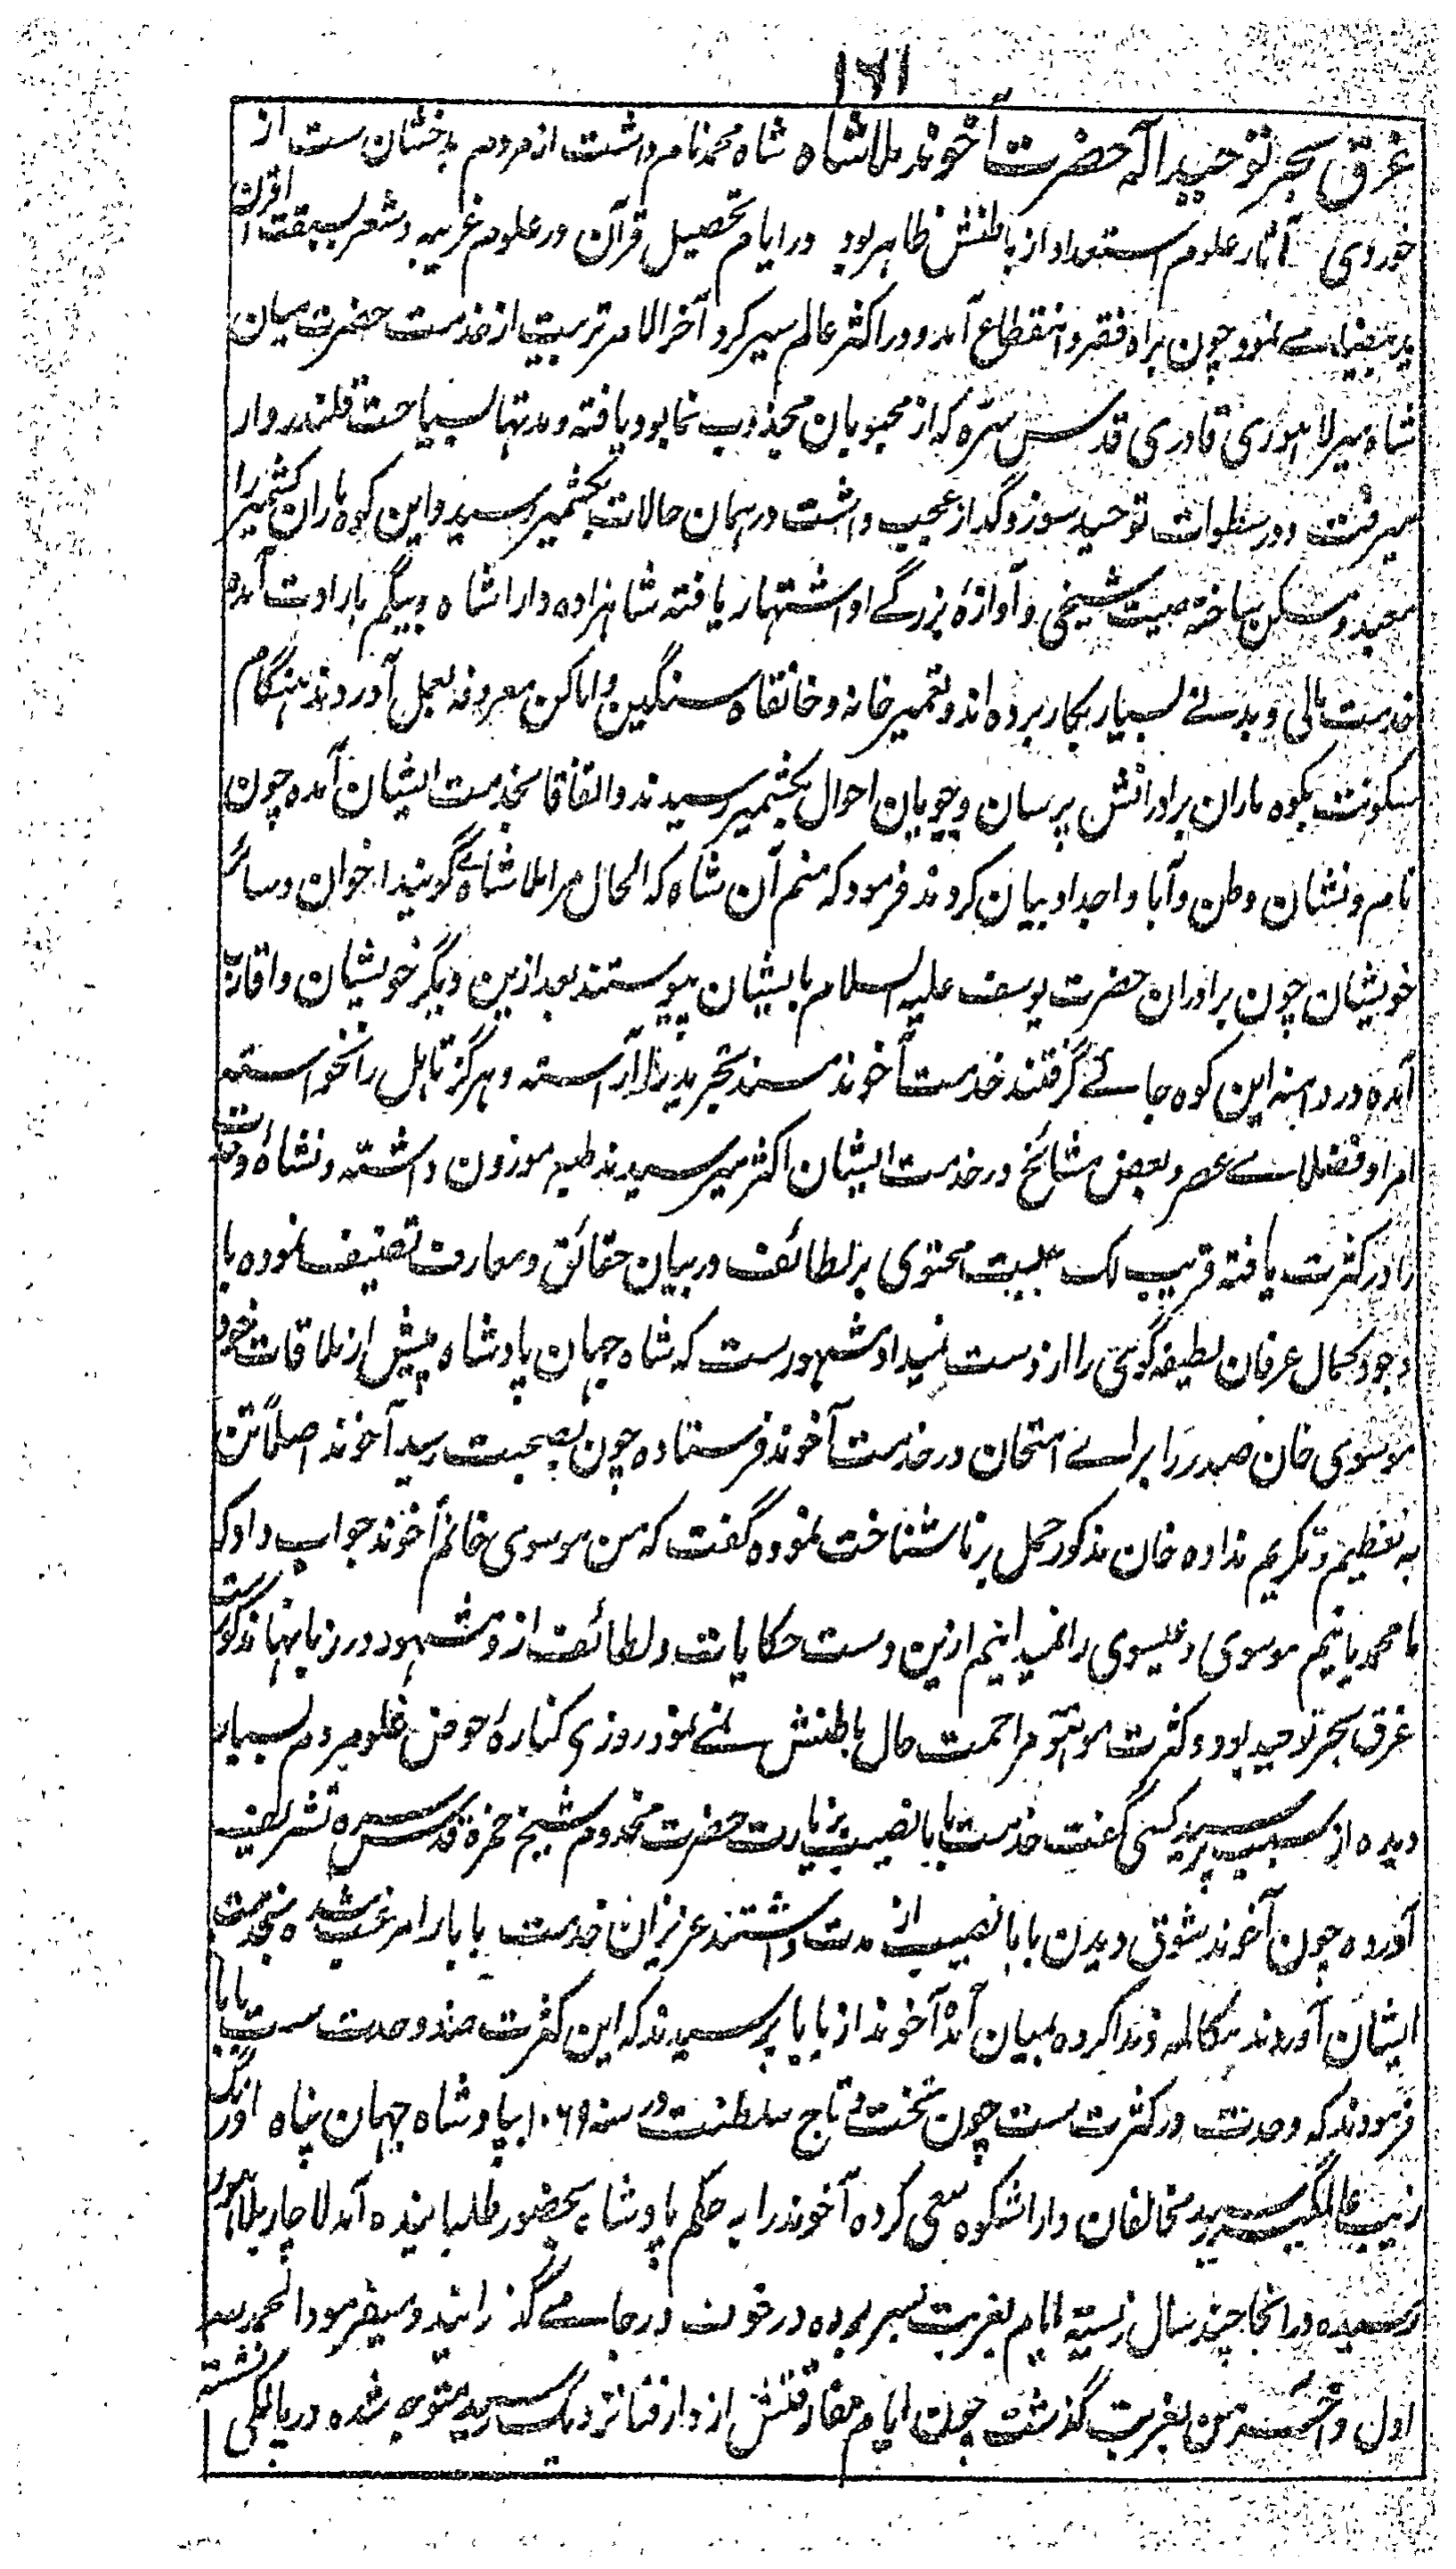 ۱۶۱
غرق بحر توحید اله حضرت آخوند ملا شاه شاه محمد نام داشت از مردم بدخشان ست از
خوردی آثار علوم استعداد از باطنش ظاهر بود در ایام تحصیل قرآن در علوم غریبه و شعر سبقت از اقران
ید بیضا می نمود چون براه فقر و انقطاع آمد و در اکثر عالم سیر کرد آخر الامر تربیت از خدمت حضرت میان
شاه میر لاهوری قادری قدس سره که از محبوبان مجذوب نما بود یافته و مدتها بسیاحت قلندر وار
میرفت و در سطوات توحید سوز و گداز عجیب داشت در همان حالات بکشمیر رسید و این کوه ماران کشمیر را
معبد و مسکن ساخته صیت شیخی و آوازهٔ بزرگے او اشتهار یافته شاهزاده دارا شاه و بیگم بارادت آمده
خدمت مالی و بدنے بسیار بکار برده اند و تعمیر خانه و خانقاه سنگین و اماکن معروفه بعمل آوردند هنگام
سکونت بکوه ماران برادرانش پرسان و جویان احوال بکشمیر رسیدند و اتفاقا بخدمت ایشان آمده چون
نام و نشان وطن و آبا و اجداد بیان کردند فرمود که منم آن شاه که الحال مرا ملا شاه مے گویند اخوان و سائر
خویشان چون برادران حضرت یوسف علیه السلام بایشان پیوستند بعد ازین دیگر خویشان و اقارب
آمده در دامنه این کوه جائے گرفتند خدمت آخوند مسند تجرید را آراسته و هرگز تاهل را نخواسته
امرا و فضلاے عصر و بعض مشائخ در خدمت ایشان اکثر میرسیدند طبع موزون داشته و نشاهٔ وحدت
را در کثرت یافته قریب لک بیت محتوی بر لطائف در بیان حقائق و معارف تصنیف نموده با
وجود کمال عرفان لطیفه گوئی را از دست نمیداد مشهور ست که شاه جهان پادشاه پیش از ملاقات خود
موسوی خان صدر را براے امتحان در خدمت آخوند فرستاده چون بصحبت رسید آخوند اصلا تن
به تعظیم و تکریم نداده خان مذکور حمل بر ناشناخت نموده گفت که من موسوی خانم آخوند جواب داد که
ما محمدیانیم موسوی و عیسوی را نمیدانیم ازین دست حکایات و لطائف از و مشهود و در زبانها مذکور ست
غرق بحر توحید بود و کثرت مزاحمت حال باطنش نمے نمود روزی کنارهٔ حوض غلو مردم بسیار
دیده از سبب پرسید کسی گفت خدمت بابا نصیب بزیارت حضرت مخدوم شیخ حمزه قدس سره تشریف
آورده چون آخوند شوق دیدن بابا نصیب از مدت داشتند عزیزان خدمت بابا را مرغب شده بخدمت
ایشان آوردند مکالمه و مذاکره بمیان آمد آخوند از بابا پرسیدند که این کثرت ضد وحدت ست بابا
فرمودند که وحدت در کثرت ست چون تخت و تاج سلطنت در سنه ۱۰۶۹ بپادشاه جهان پناه اورنگ
زیب عالمگیر رسید مخالفان داراشکوه سعی کرده آخوند را به حکم پادشاه بحضور طلبانیده آمد لاچار بلاهور
رسیده در آنجا چند سال زیسته ایام بغربت بسر برده در خوف و رجا مے گذرانید و میفرمود الحمد لله
اول و آخر من بغربت گذشت چون ایام مفارقتش از دار فنا نزدیک رسید متوجه شده در پالکی نشسته